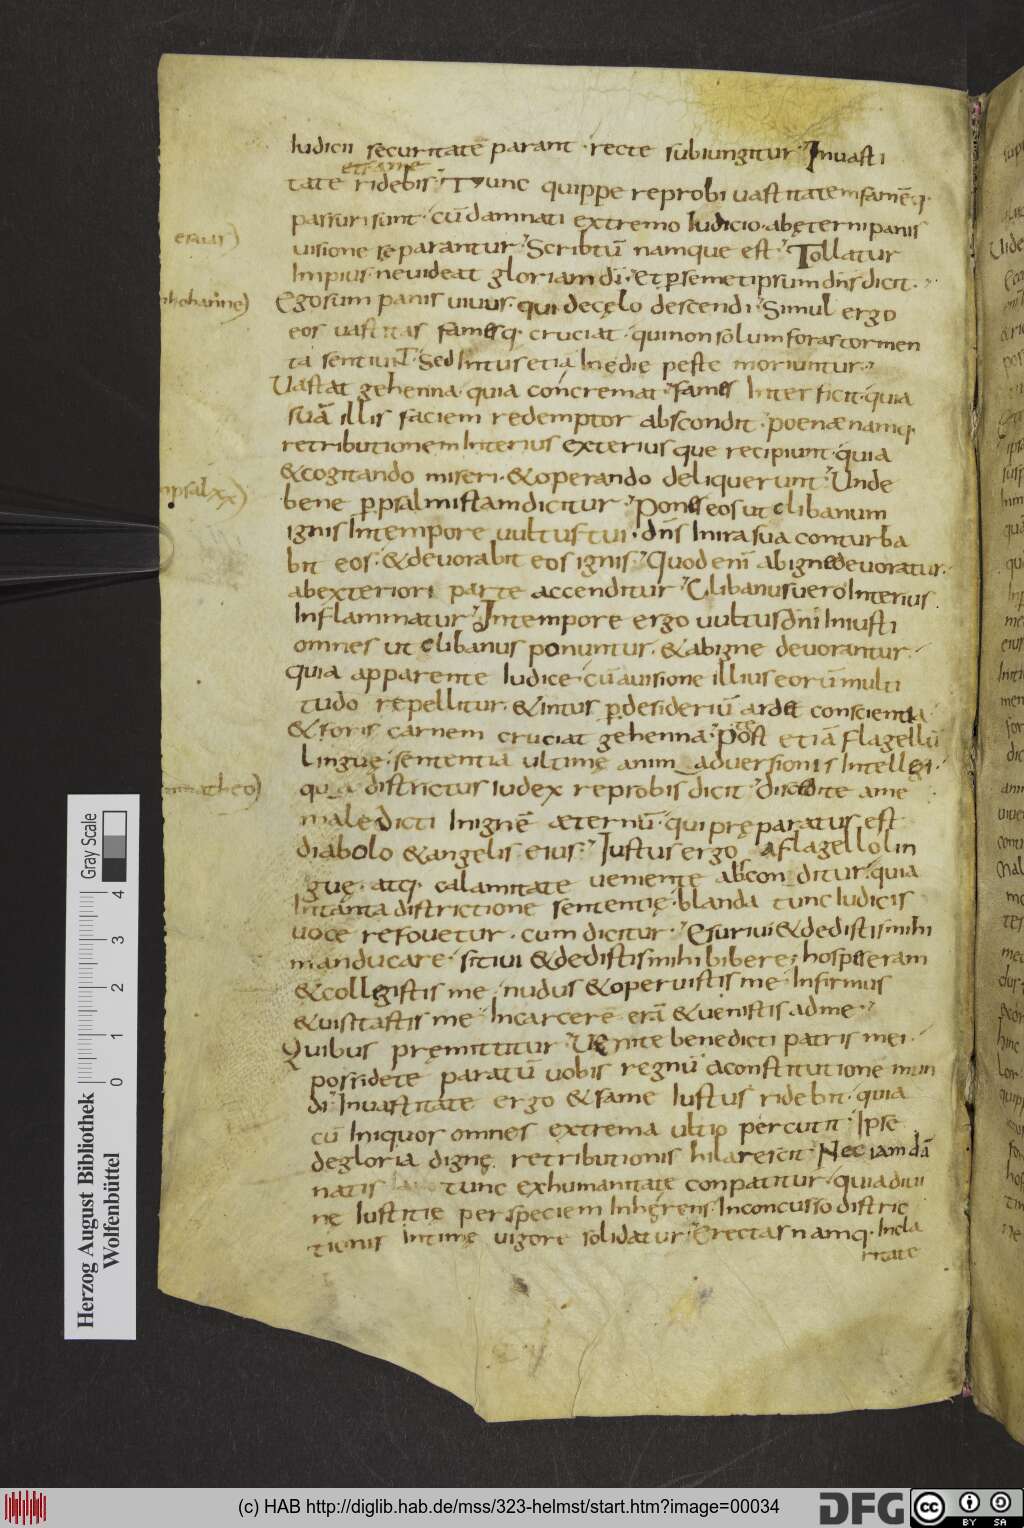 Iudicii securitatē parant · recte subiungitur · Inuasti
et fame
tate ridebis · Tunc quippe reprobi uastitatem famēq·
passuri sunt · cū damnati extremo Iudicio · abęterni panis
esaias)
uisione separantur · Scribtū namque est · Tollatur
Impius · ne uideat gloriam dī · Et p semetipsum dn̄s dicit ·
Iohanne)
Ego sum panis uiuus · qui de cęlo descendi · Simul ergo
eos uastitas famesq· cruciat · qui non solum foras tormen
ta sentiunt · Sed Intus etiā Inedię peste moriuntur ·
Uastat gehenna · quia concremat · fames Interficit · quia
suā illis faciem redemptor abscondit · poenæ namq·
retributionem Interius exterius que recipiunt · quia
& cogitando miseri · & operando deliquerunt · Unde
psal xx)
bene p psalmistam dicitur · Pones eos ut clibanum
ignis In tempore uultus tui · dn̄s In ira sua conturba
bit eos · & deuorabit eos ignis · Quod enī ab igne deuoratur ·
ab exteriori parte accenditur · Clibanus uero Interius
Inflammatur · In tempore ergo uultus dn̄i Iniusti
omnes ut clibanus ponuntur · & ab igne deuorantur ·
quia apparente Iudice · cū a uisione illius eorū multi
tudo repellitur · & intus p desideriū ardet conscientia
& foris carnem cruciat gehenna · Potest etiā flagellū
linguę · sententia ultimę animaduersionis Intellegi ·
matheo)
qua districtus iudex reprobis dicit · Discedite a me
maledicti In ignē æternū · qui pręparatus est
diabolo & angelis eius · Iustus ergo a flagello lin
guę · atq· calamitate ueniente abscon ditur · quia
In tanta districtione sententię · blanda tunc Iudicis
uoce refouetur · cum dicitur · Esuriui & dedistis mihi
manducare · sitiui & dedistis mihi bibere; hospes eram
& collegistis me · nudus & operuistis me · Infirmus
& uisitastis me · In carcere erā & uenistis ad me ·
Quibus pręmittitur · Uenite benedicti patris mei ·
possidete paratū uobis regnū a constitutione mun
di · In uastitate ergo & fame Iustus ridebit · quia
cū Iniquos omnes extrema ultio percutit · Ipse
de gloria dignę retributionis hilarescit · Nec iam dā
natis tunc ex humanitate conpatitur · quia diui
nę Iustitię per speciem Inhęrens · Inconcusso distric
tionis Intimę uigore solidatur · Erectas namq· In cla
ritate
Gray Scale
4
3
2
1
0
Herzog August Bibliothek
Wolfenbüttel
(c) HAB http://diglib.hab.de/mss/323-helmst/start.htm?image=00034
DFG
cc
BY SA